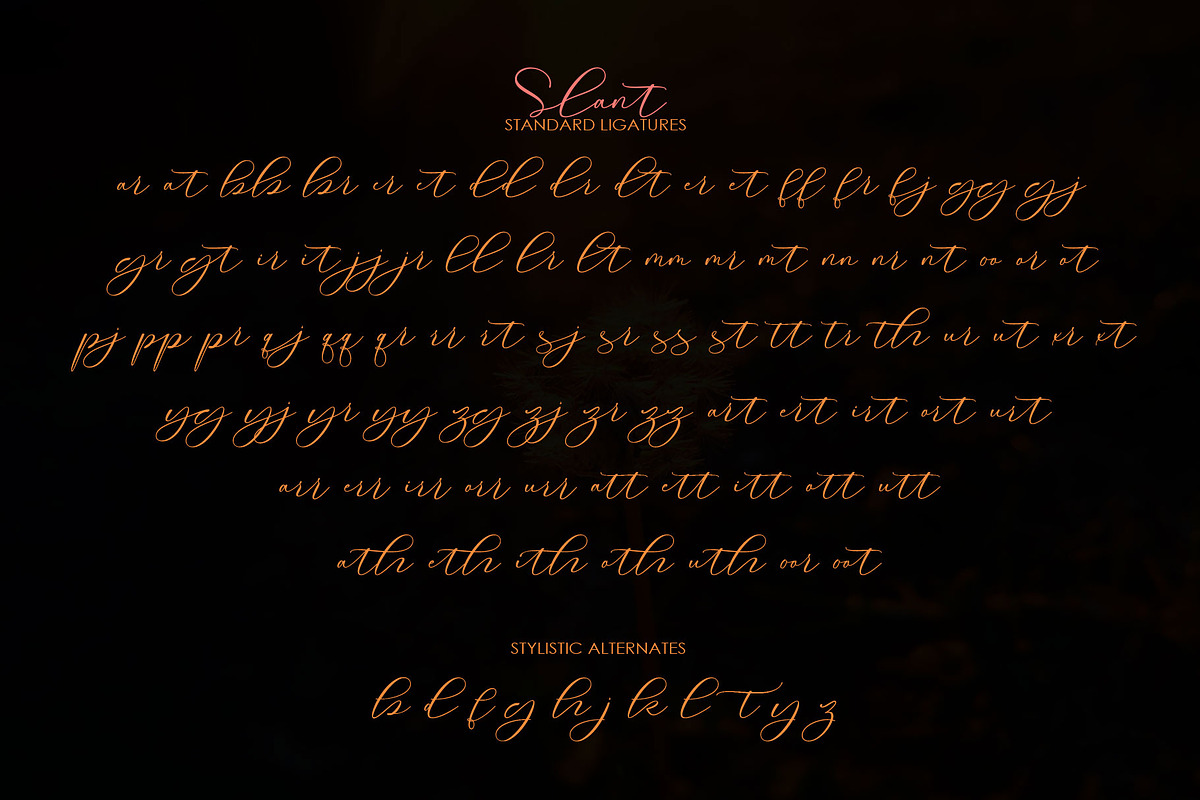 Slant
STANDARD LIGATURES
ar at bb br cr ct dd dr dt er et ff fr fj gg gj
gr gt ir it jj jr ll lr lt mm mr mt nn nr nt oo or ot
pj pp pr qj qq qr rr rt sj sr ss st tt tr th ur ut xr xt
yg yj yr yy zg zj zr zz art ert irt ort urt
arr err irr orr urr att ett itt ott utt
ath eth ith oth uth oor oot
STYLISTIC ALTERNATES
b d f g h j k l t y z